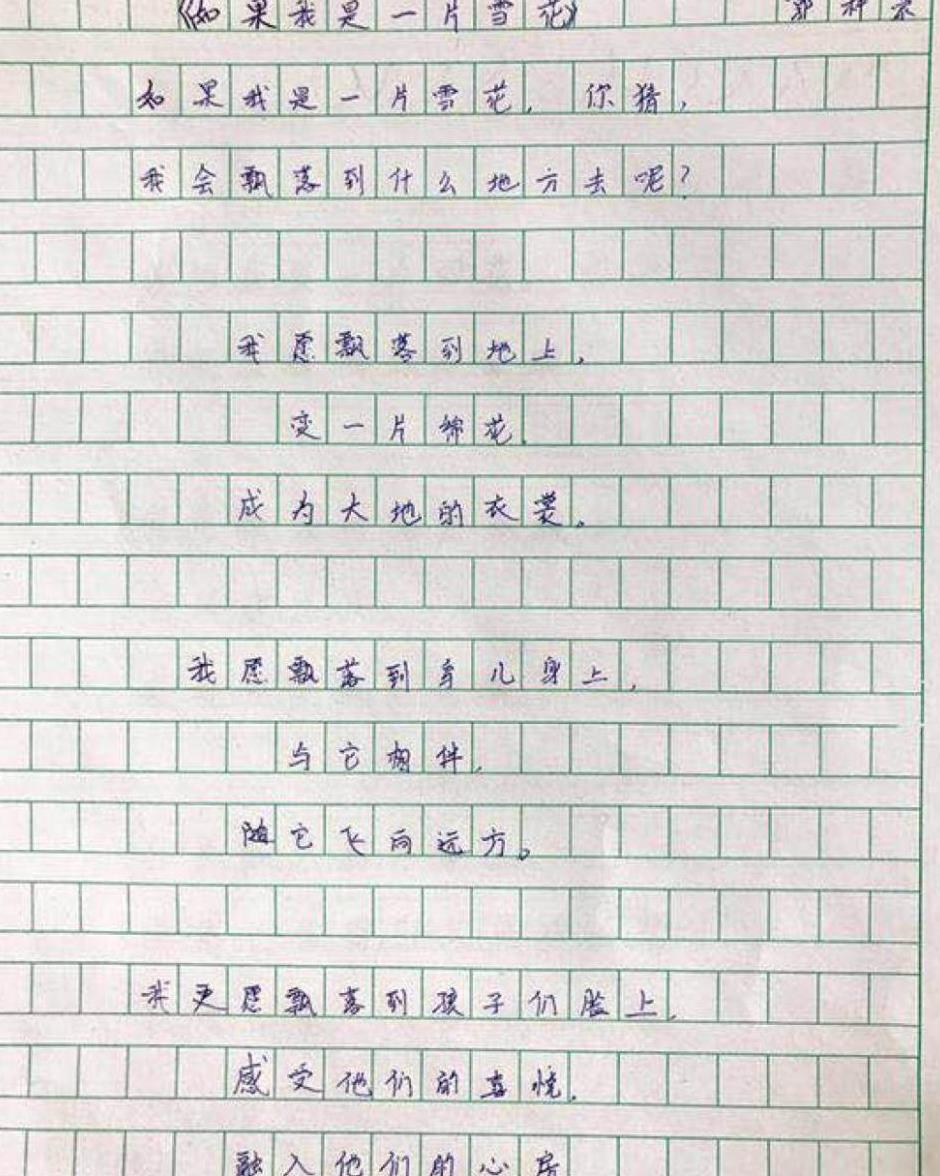 《如果我是一片雪花》
如果我是一片雪花，你猜，
我会飘落到什么地方去呢？
我愿飘落到地上，
变一片绵花，
成为大地的衣裳。
我愿飘落到鸟儿身上，
与它相伴，
随它飞向远方。
我更愿飘落到孩子们脸上，
感受他们的喜悦，
融入他们的心房